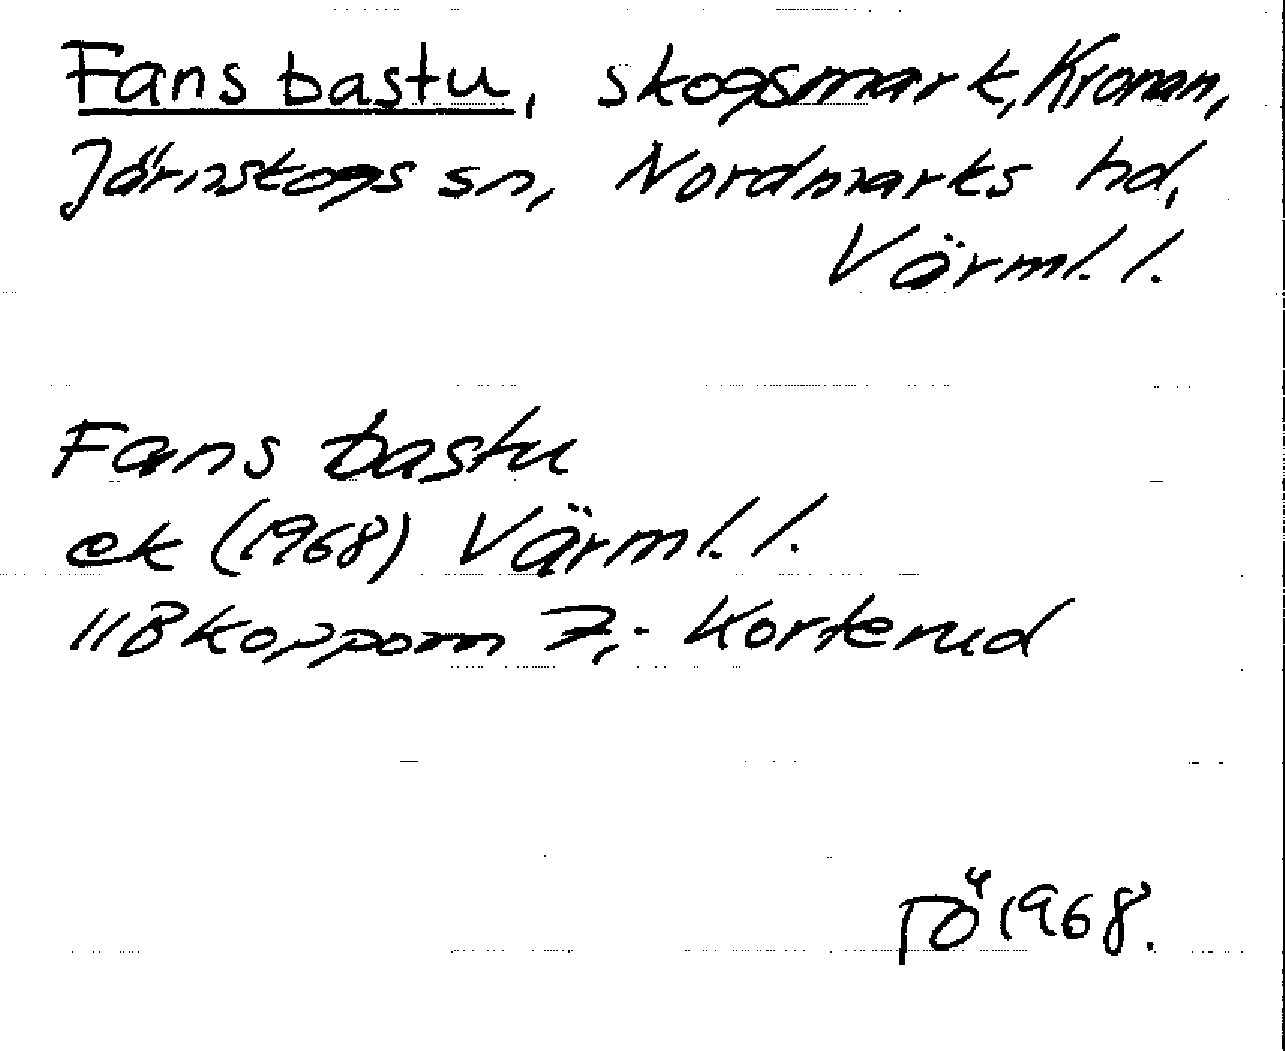 Fans bastu, skogsmark, Kronan,
Järnskogs sn, Nordmarks hd,
Värml. l.
Fans bastu
ek (1968) Värml. l.
11B Koppom 7,- Korterud
TÖ 1968.